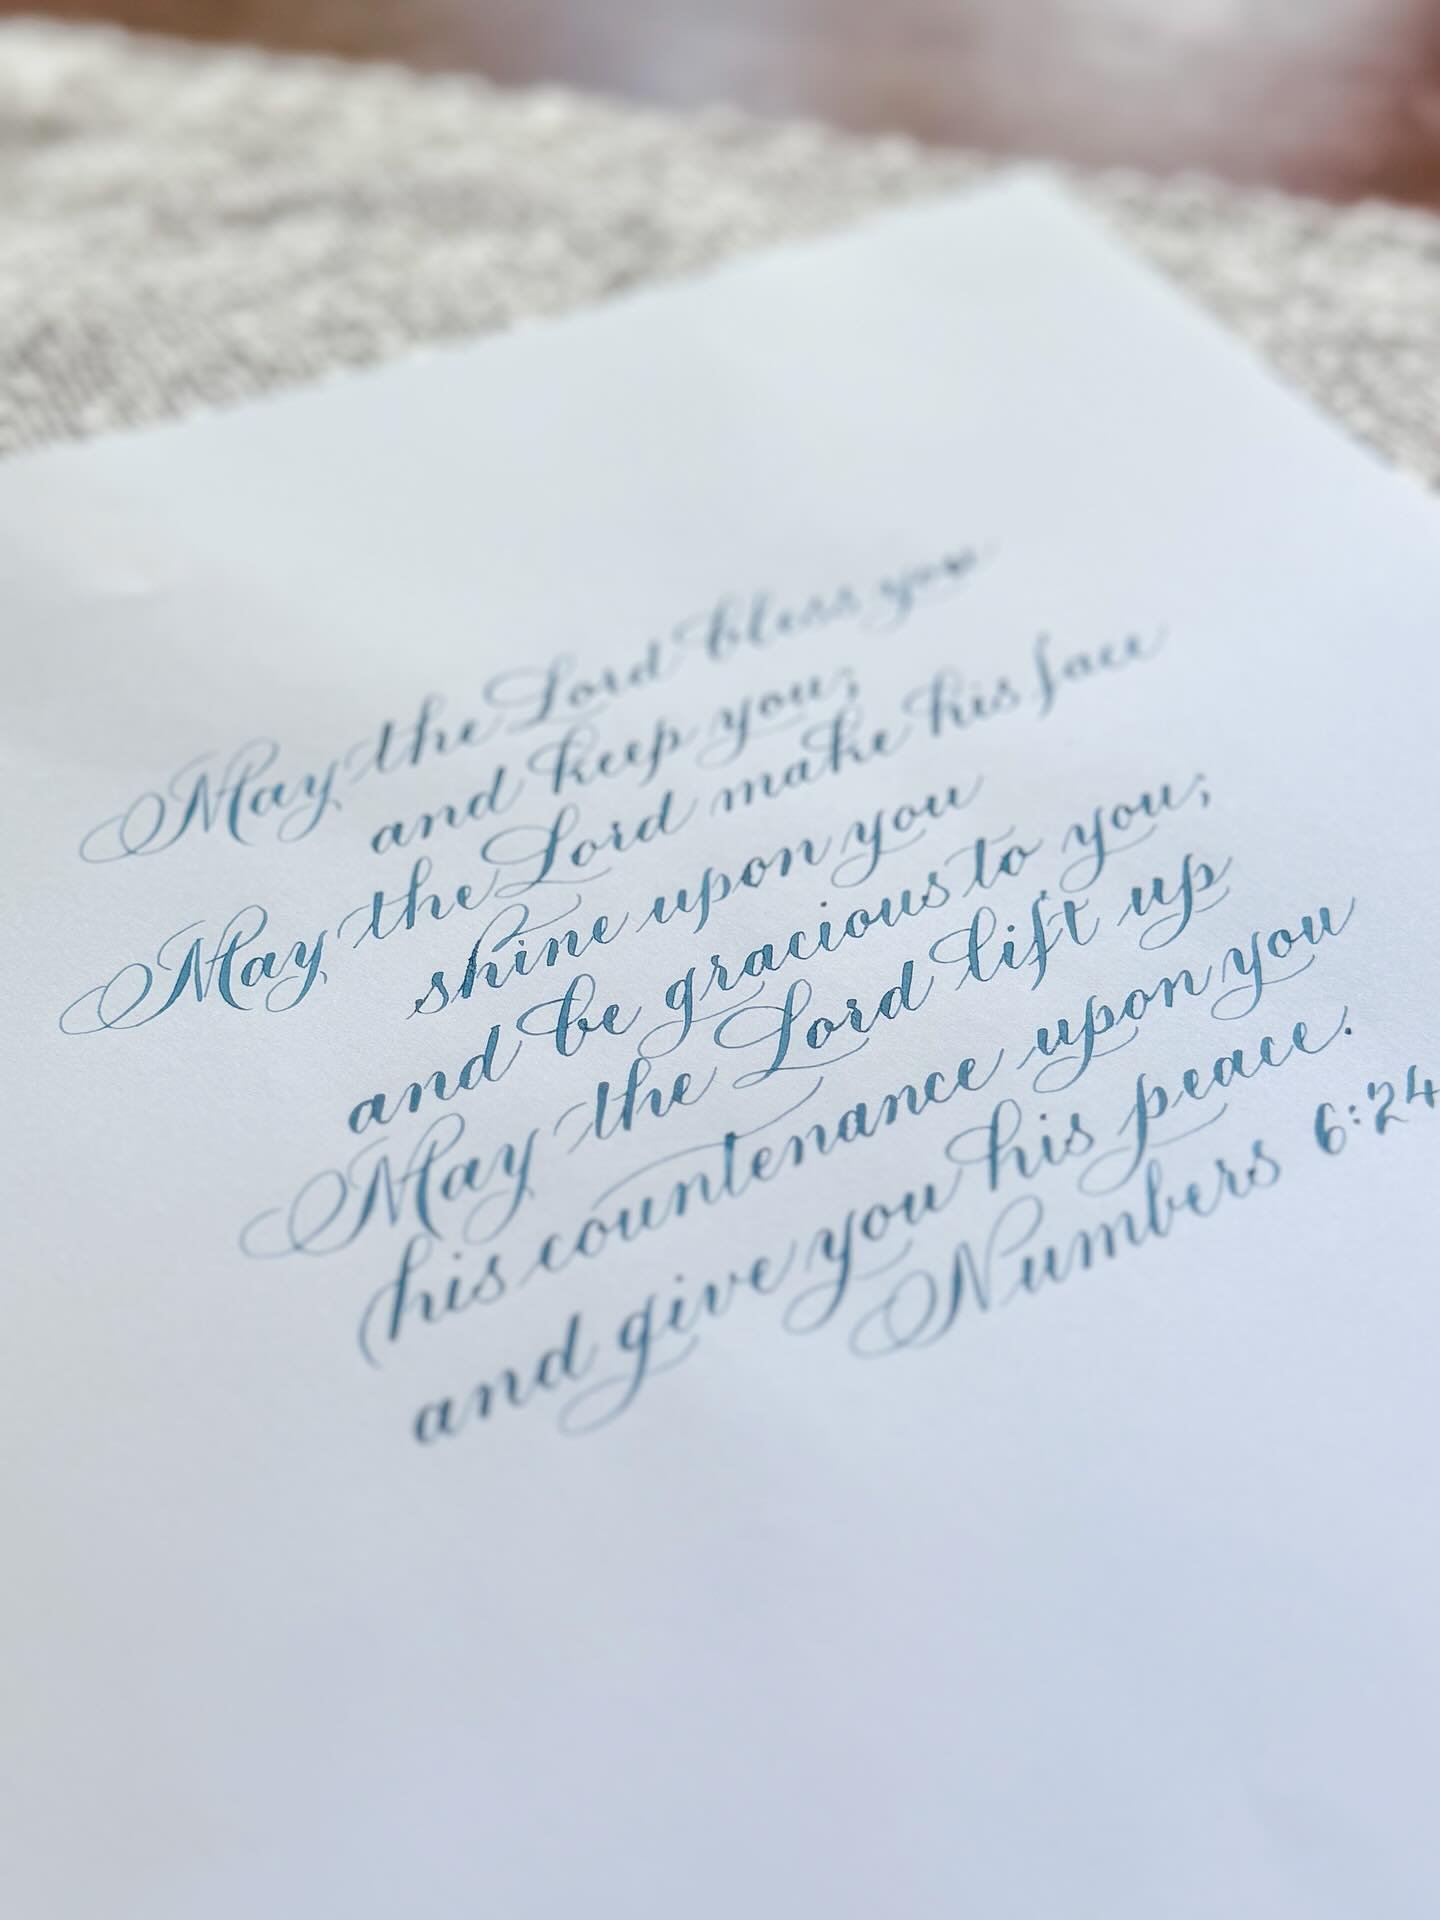 May the Lord bless you
and keep you;
May the Lord make his face
shine upon you
and be gracious to you;
May the Lord lift up
his countenance upon you
and give you his peace.
Numbers 6:24